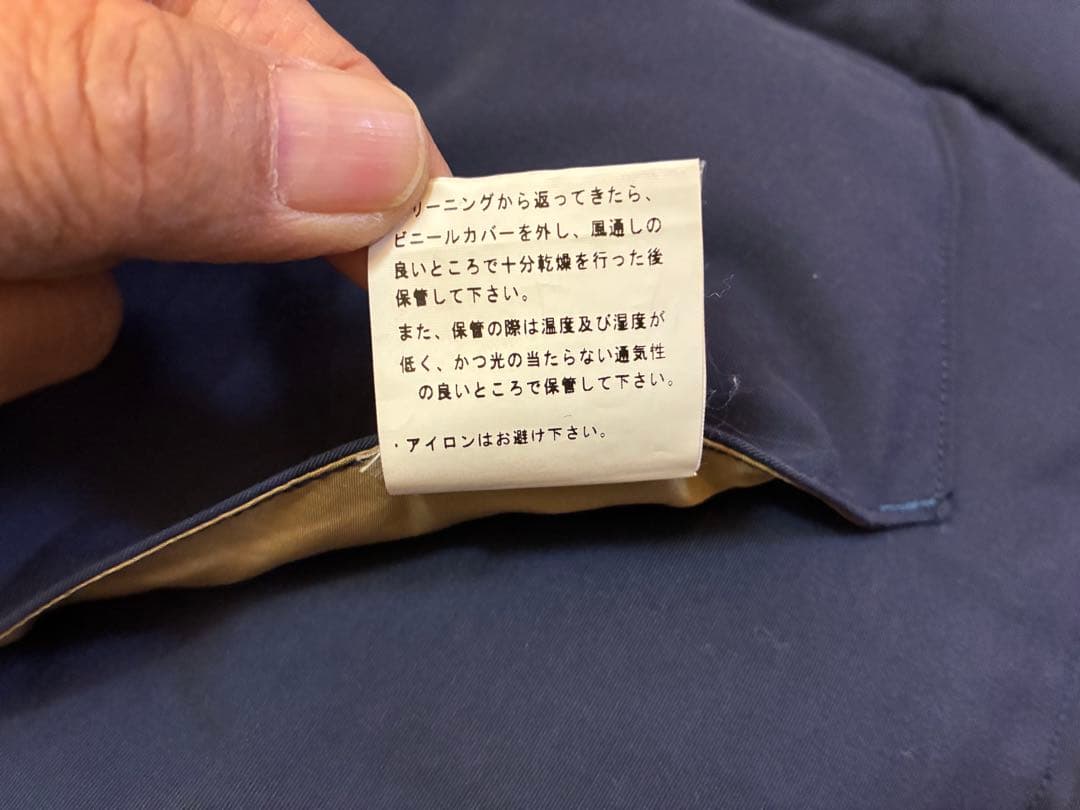 リーニングから返ってきたら、
ビニールカバーを外し、風通しの
良いところで十分乾燥を行った後
保管して下さい。
また、保管の際は温度及び湿度が
低く、かつ光の当たらない通気性
の良いところで保管して下さい。
・アイロンはお避け下さい。